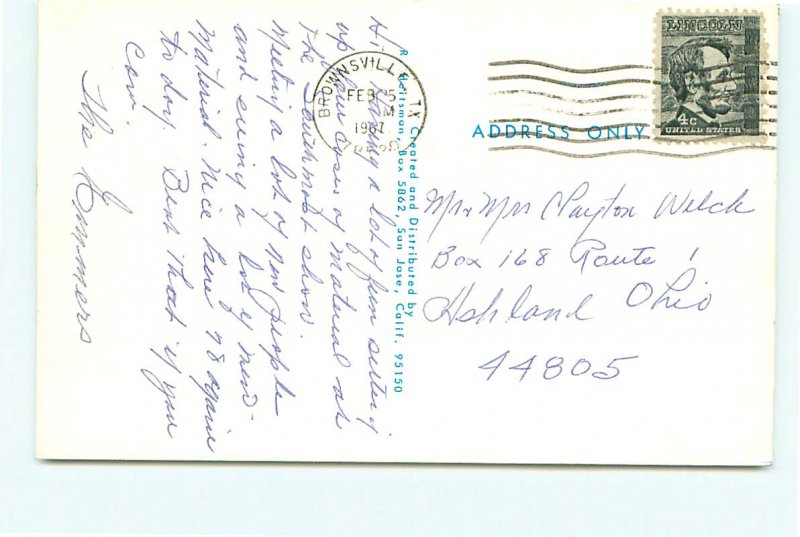 Hi, Having a lot of fun setting
up our cases of Material at
the Southmost show.
Meeting a lot of new people
and seeing a lot of new
Material. Nice here 78 again
to day. Beat that if you
can.
The Summers
Created and Distributed by
Heitsman, Box 5862, San Jose, Calif. 95150
BROWNSVILLE, TX
FEB 5
PM
1967
LINCOLN
4c
UNITED STATES
ADDRESS ONLY
Mr & Mrs Clayton Welch
Box 168 Route 1
Ashland Ohio
44805